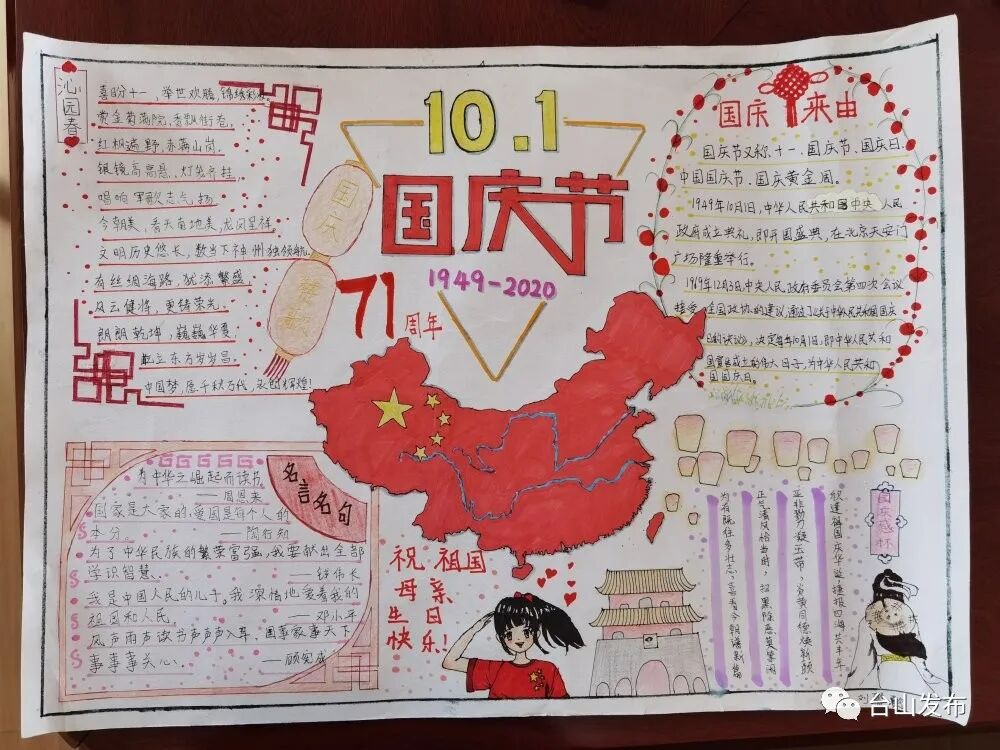 沁园春
喜盼十一，举世欢腾，锦绣彩
黄金菊满院，香飘街巷，
红枫遍野，赤满山岗，
银镜高高悬，灯笼齐挂，
唱响军歌志气扬
今朝美，看天自地美，龙凤呈祥。
文明历史悠长，数当下神州独领航
有丝绸海路，犹添繁盛
风云健将，更铸荣光，
朗朗乾坤，巍巍华夏，
屹立东方岁岁昌
中国梦，愿千秋万代，永创辉煌！
国庆
赞歌
10.1
国庆节
1949-2020
71周年
国庆来由
国庆节又称十一、国庆节、国庆日、
中国国庆节、国庆黄金周。
1949年10月1日，中华人民共和国中央人民
政府成立典礼，即开国盛典，在北京天安门
广场隆重举行。
1969年12月3日中央人民政府委员会第四次会议
接受全国政协的建议，通过了《关于中华人民共和国国庆
日的决议》，决定每年10月1日，即中华人民共和
国宣告成立的伟大日子，为中华人民共和
国国庆日。
名言名句
为中华之崛起而读书
——周恩来
国家是大家的，爱国是每个人的
本分。——陶行知
为了中华民族的繁荣富强，我要献出全部
学识智慧。——钱伟长
我是中国人民的儿子。我深情地爱着我的
祖国和人民。——邓小平
风声雨声读书声声声入耳，国事家事天下
事事事关心。——顾宪成
祝祖国
母亲
生日
快乐！
国庆感怀
欣逢祖国庆华诞，捷报四海共丰年
亚非勤力凝玉带，炎黄同德焕新颜
正气清风恰当时，扫黑除恶莫等闲
为有既往多壮志，喜看今朝谱新篇
台山发布